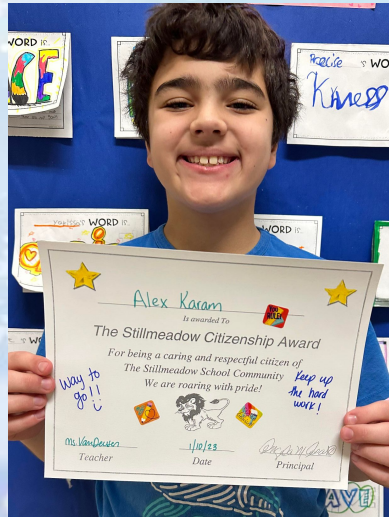 WORD IS
CE
WORD
Kness
WORD IS
Alex Karam
Is awarded To
YOU RULE!
The Stillmeadow Citizenship Award
For being a caring and respectful citizen of
The Stillmeadow School Community
We are roaring with pride!
Way to
go!!
Keep up
the hard
work!
Ms. VanDeusen
1/10/23
Teacher
Date
Principal